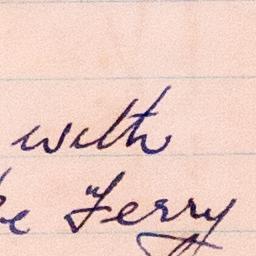 with
Ferry